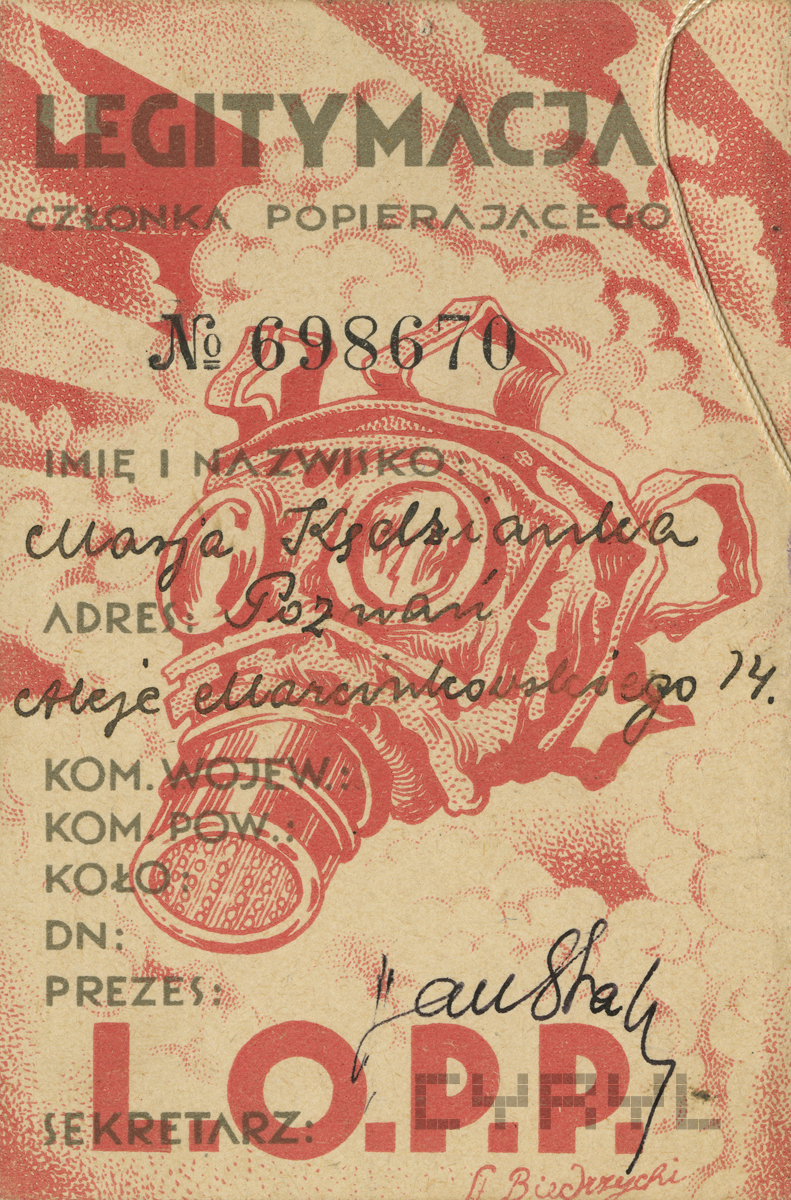 LEGITYMACJA
CZŁONKA POPIERAJĄCEGO
№ 698670
IMIĘ I NAZWISKO:
Marja Kędzianka
ADRES: Poznań
Aleje Marcinkowskiego 14.
KOM. WOJEW.:
KOM. POW.:
KOŁO:
DN:
PREZES:
L.O.P.P.
CYRYL
SEKRETARZ: